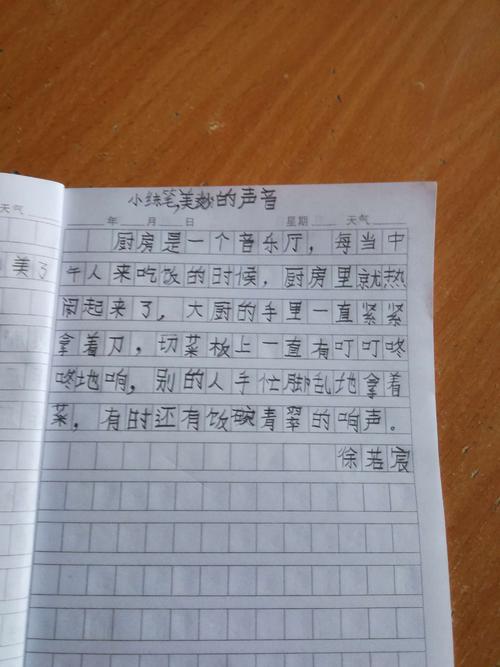 小练笔,美妙的声音
天气
年 月 日 星期 天气
美了
厨房是一个音乐厅，每当中
午人来吃饭的时候，厨房里就热
闹起来了，大厨的手里一直紧紧
拿着刀，切菜板上一直有叮叮咚
咚地响，别的人手忙脚乱地拿着
菜，有时还有饭碗青翠的响声。
徐若宸